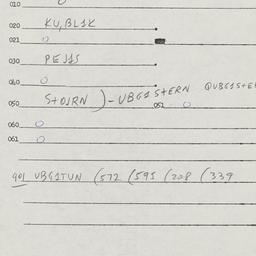 010
020 KU,BL1K
021
030 PEJ1S
040
050 STOJRN )-UBG1STERN QUBG1STE
051
060
061
901 UBG1TUN (572 (595 (208 (339